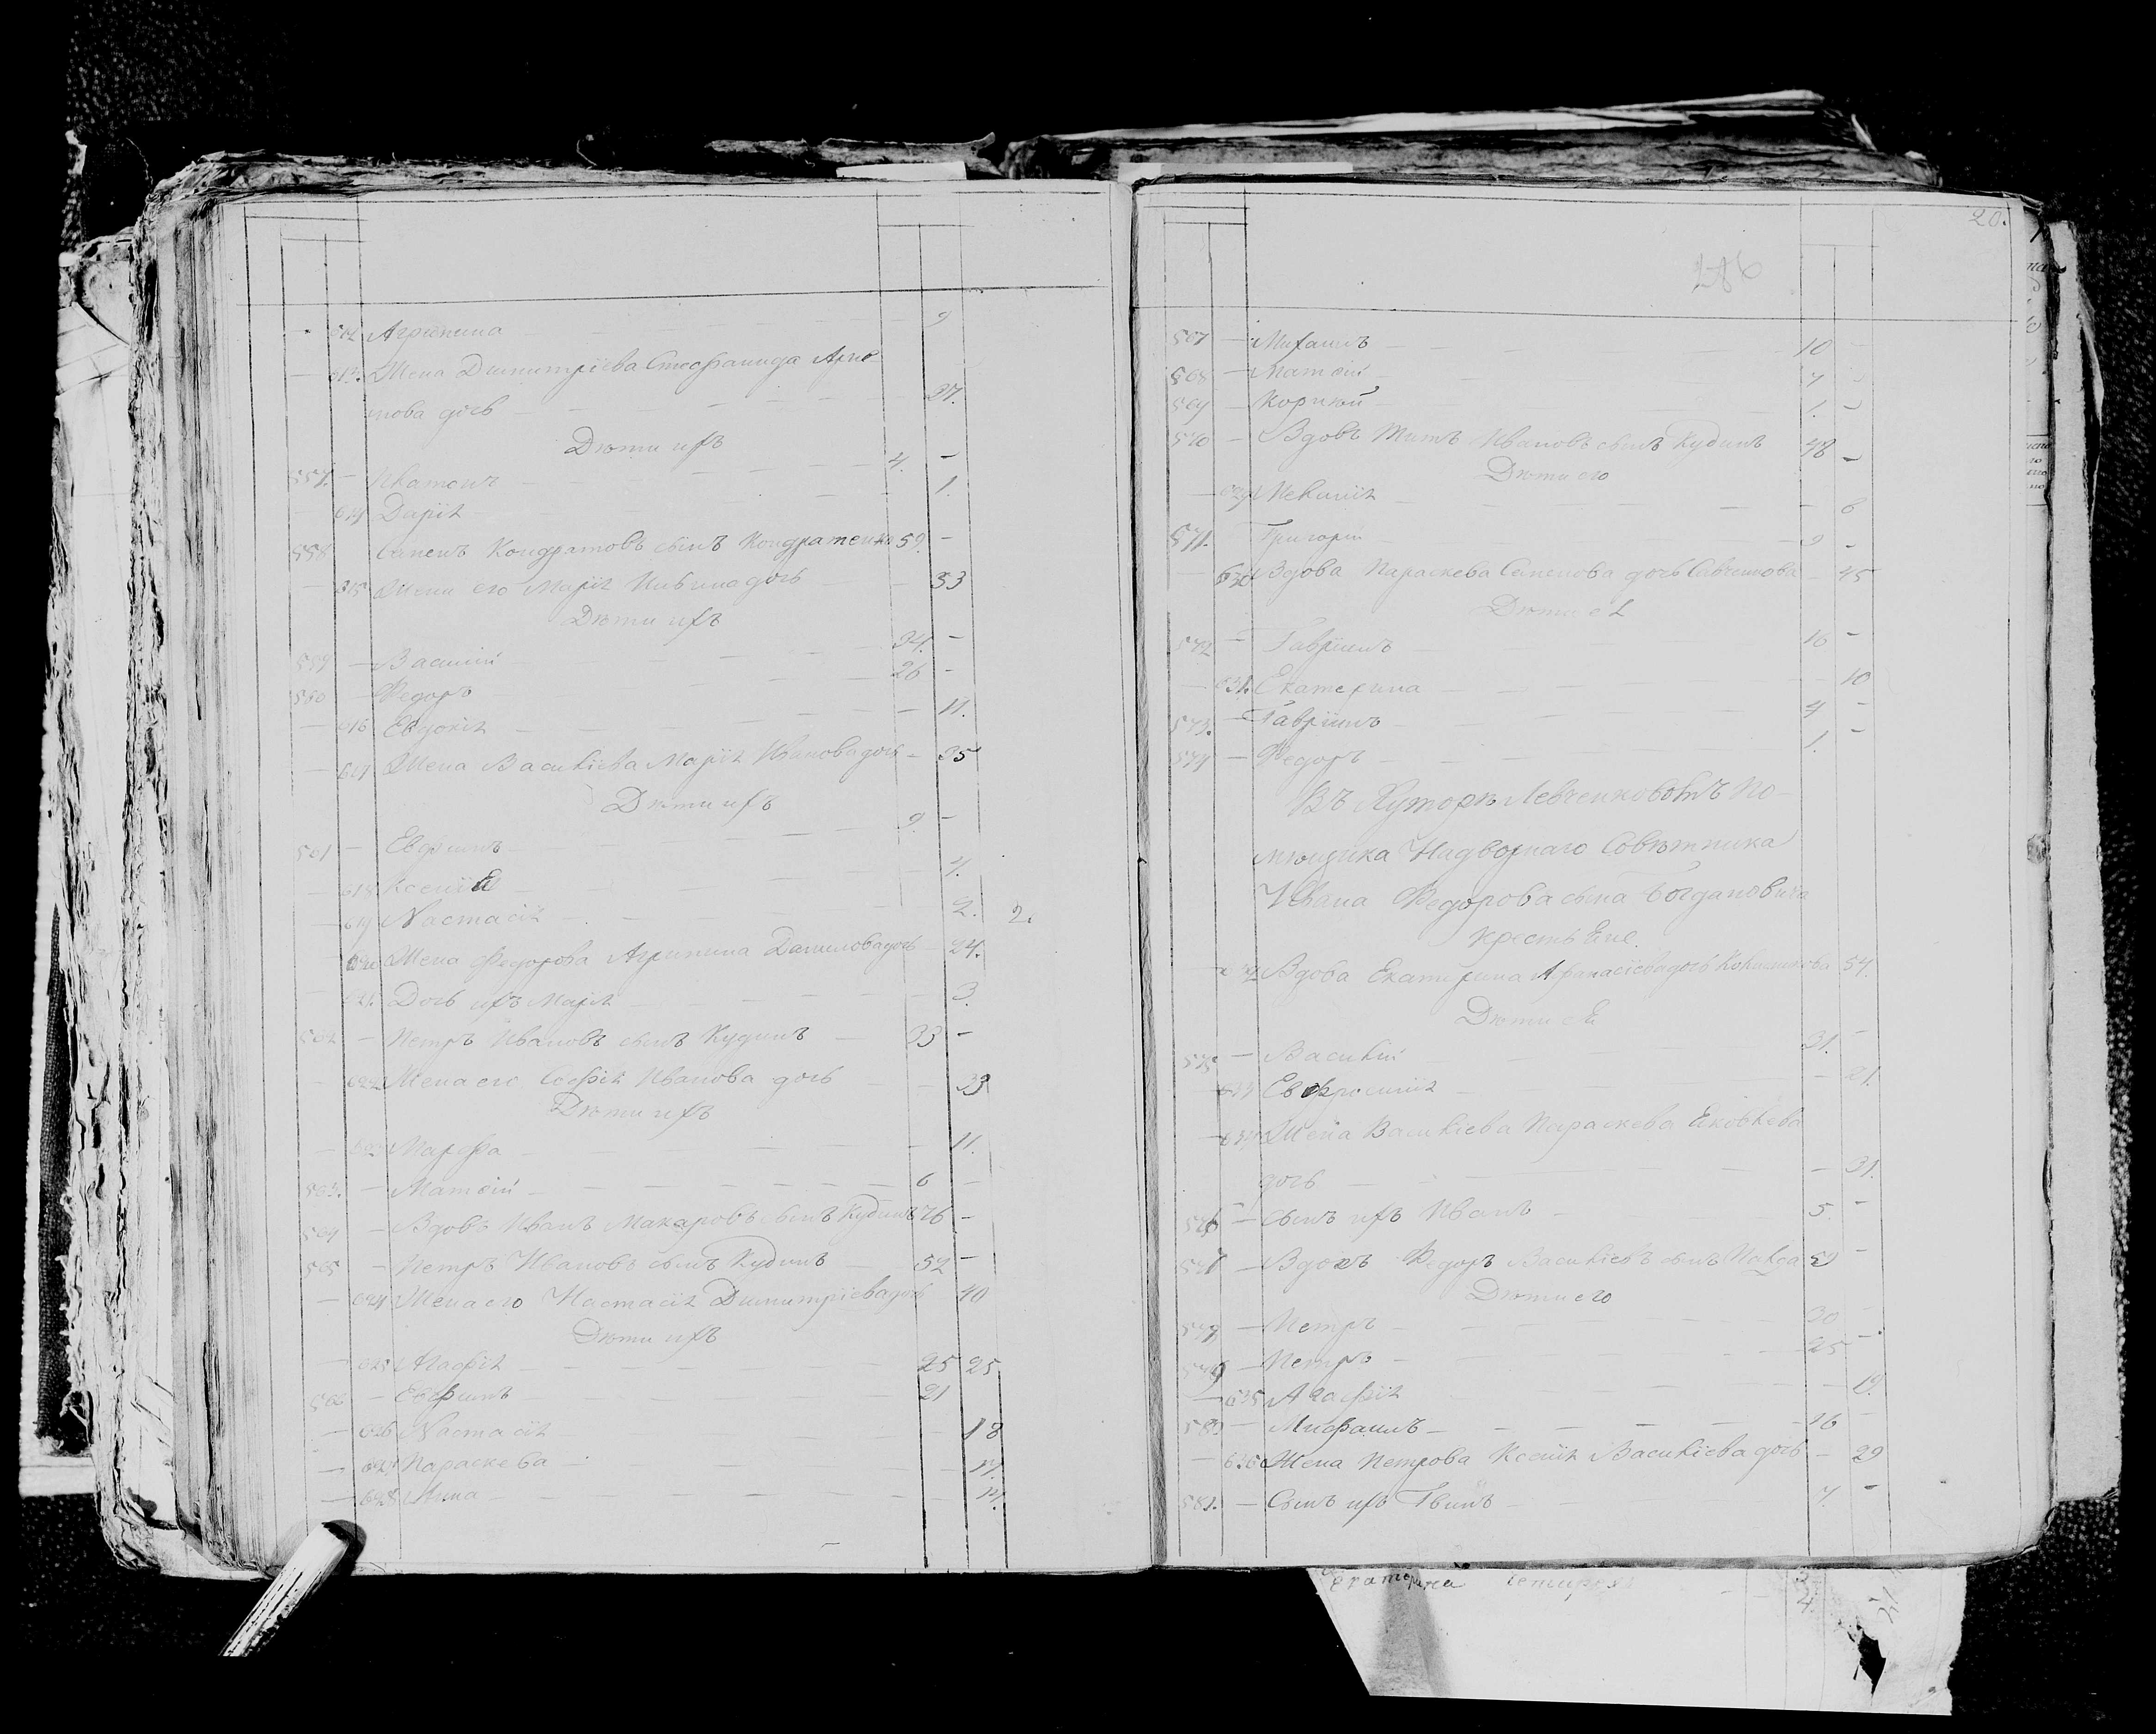 612 Агрипина — — — 9
613. Жена Димитріева Стефанида Арте-
мова дочь — — — 37.
Дѣти ихъ
557. — Платонъ — — — 4. —
614 Дарія — — — 1.
558 Самепъ Кондратовъ сынъ Кондратенко 59. —
— 615 Жена его Марія Ивлина дочь — — 53
Дѣти ихъ
559 — Василій — — — 34. —
560 — Федоръ — — — 26 —
— 616 Евдокія — — — 11.
— 617 Жена Василіева Марія Иванова дочь — 35
Дѣти ихъ
561 — Евфимъ — — — 9. —
— 618 Ксенія — — — 4.
— 619 Настасія — — — 2. 2.
620 Жена Федорова Агрипина Данилова дочь — 24.
— 621. Дочь ихъ Марія — — — 3.
562 — Петръ Ивановъ сынъ Кудинъ — 33 —
— 622 Жена его Софія Иванова дочь — — 33
Дѣти ихъ
— 623 Марфа — — — 11.
563. — Матѳій — — — 6 —
564 — Вдовъ Иванъ Макаровъ сынъ Кудинъ 76 —
565 — Петръ Ивановъ сынъ Кудинъ — 52 —
— 624 Жена его Настасія Димитріева дочь 40
Дѣти ихъ
— 625 Агафія — — — 25 25
566 — Евфимъ — — — 21
— 626 Настасія — 18
— 627 Параскева — — 17.
— 628 Анна — — — 14.
20.
286
567 — Михаилъ — — — 10 —
568 — Матѳій — — — 7 —
569 — Корнилій — — — 1. —
570 — Вдовъ Титъ Ивановъ сынъ Кудинъ 48 —
Дѣти его
— 629 Пекилія — — — 6
571. Григорій — — — 9 —
630 Вдова Параскева Самепова дочь Савченкова — 45
Дѣти ея
572 — Гавріилъ — — — 16 —
— 631. Екатерина — — — 10
573. — Гавріилъ — — — 4 —
574 — Федоръ — — — 1. —
Въ Хуторѣ Левченковомъ По-
мѣщика Надворнаго Совѣтника
Ивана Федорова сына Богдановича
крестьяне.
632 Вдова Екатерина Афанасіева дочь 57.
Дѣти ея
575 — Василій — — — 31. —
633 Евфросинія — — — 21.
— 634 Жена Василіева Параскева Яковлева
дочь — — — 31.
576 — Сынъ ихъ Иванъ — 5. —
577 — Вдовъ Федоръ Василіевъ сынъ 59 —
Дѣти его
578 — Петръ — — — 30 —
579 — Петръ — — — 25 —
— 635 Агафія — — — 19.
580 — Михаилъ — — — 16 —
— 636 Жена Петрова Ксенія Василіева дочь — 29
581. — Сынъ ихъ — 7. —
Екатерина
3
4